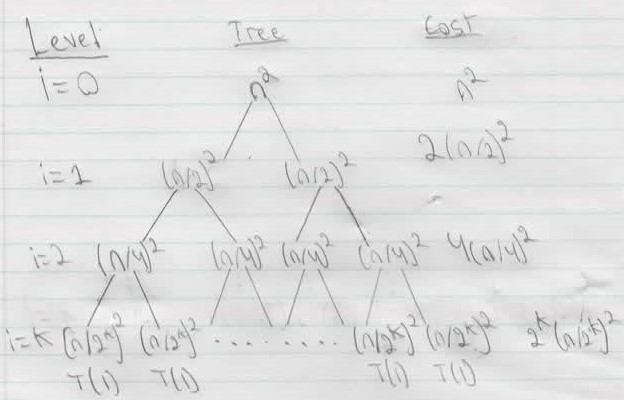 Level Tree Cost
i=0 n² n²
2(n/2)²
i=1 (n/2)² (n/2)²
i=2 (n/4)² (n/4)² (n/4)² (n/4)² 4(n/4)²
i=k (n/2ᵏ)² (n/2ᵏ)² ........ (n/2ᵏ)² (n/2ᵏ)² 2ᵏ(n/2ᵏ)²
T(1) T(1) T(1) T(1)